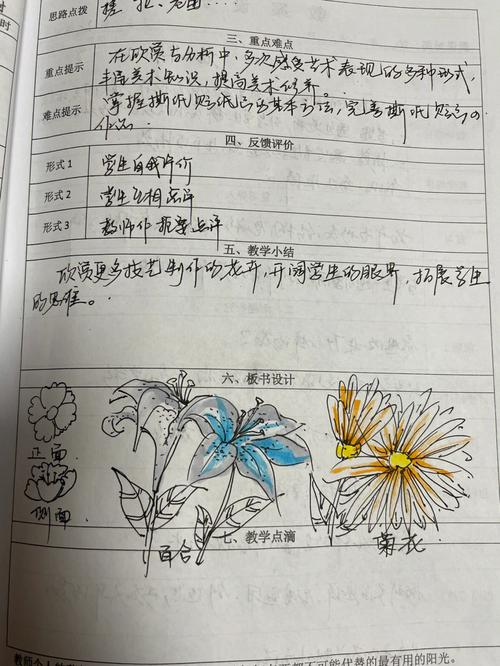 思路点拨
三、重点难点
重点提示 在欣赏与分析中，多次感受艺术表现的多种形式，
丰富美术知识，提高美术修养。
难点提示 掌握撕纸贴画的基本方法，完善撕纸贴画的
作品
四、反馈评价
形式1 学生自我评价
形式2 学生互相点评
形式3 教师作 点评
五、教学小结
欣赏更多技艺制作的花卉，开阔学生的眼界，拓展学生
的思维。
六、板书设计
正面
侧面
百合
菊花
七、教学点滴
不可能代替的最有用的阳光。